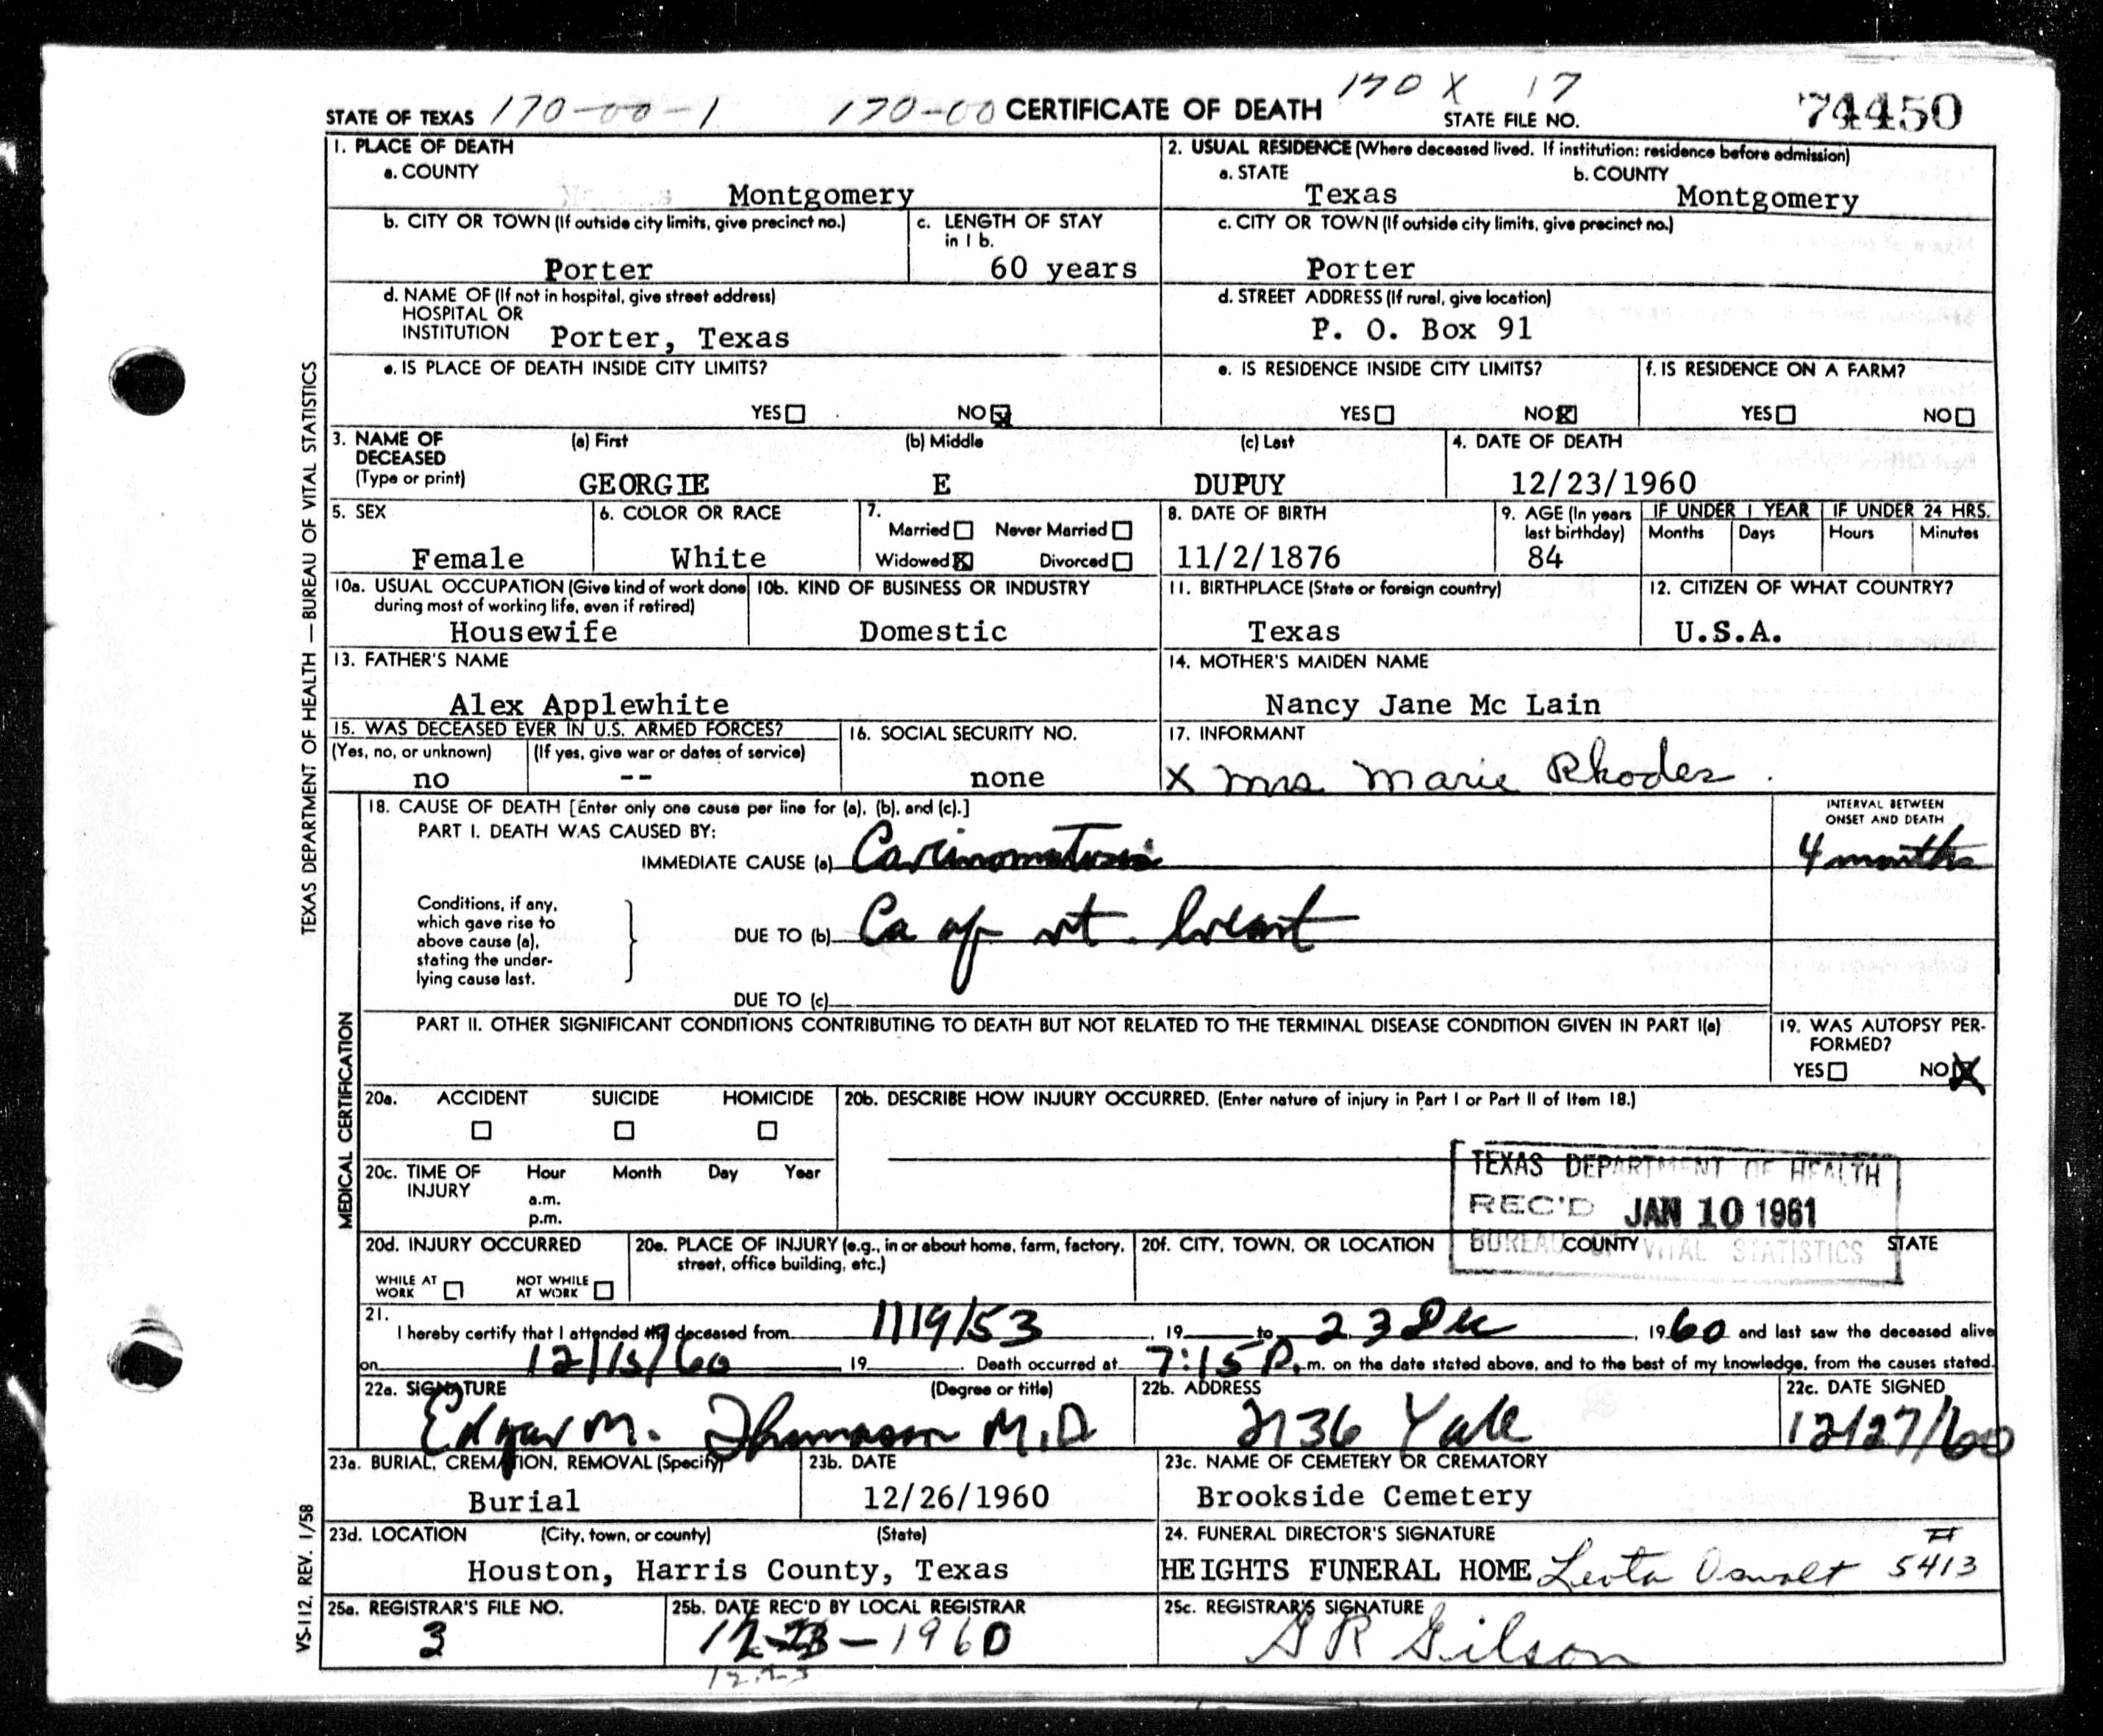 STATE OF TEXAS 170-00-1 170-00 CERTIFICATE OF DEATH 170 X 17 STATE FILE NO. 74450
1. PLACE OF DEATH
a. COUNTY
Montgomery
2. USUAL RESIDENCE (Where deceased lived. If institution: residence before admission)
a. STATE b. COUNTY
Texas Montgomery
b. CITY OR TOWN (If outside city limits, give precinct no.)
Porter
c. LENGTH OF STAY
in 1 b.
60 years
c. CITY OR TOWN (If outside city limits, give precinct no.)
Porter
d. NAME OF (If not in hospital, give street address)
HOSPITAL OR
INSTITUTION Porter, Texas
d. STREET ADDRESS (If rural, give location)
P. O. Box 91
e. IS PLACE OF DEATH INSIDE CITY LIMITS?
YES NO
e. IS RESIDENCE INSIDE CITY LIMITS?
YES NO
f. IS RESIDENCE ON A FARM?
YES NO
3. NAME OF
DECEASED
(Type or print)
(a) First (b) Middle (c) Last
GEORGIE E DUPUY
4. DATE OF DEATH
12/23/1960
5. SEX
Female
6. COLOR OR RACE
White
7.
Married Never Married
Widowed Divorced
8. DATE OF BIRTH
11/2/1876
9. AGE (In years
last birthday)
84
IF UNDER 1 YEAR
Months Days
IF UNDER 24 HRS.
Hours Minutes
10a. USUAL OCCUPATION (Give kind of work done
during most of working life, even if retired)
Housewife
10b. KIND OF BUSINESS OR INDUSTRY
Domestic
11. BIRTHPLACE (State or foreign country)
Texas
12. CITIZEN OF WHAT COUNTRY?
U.S.A.
13. FATHER'S NAME
Alex Applewhite
14. MOTHER'S MAIDEN NAME
Nancy Jane Mc Lain
15. WAS DECEASED EVER IN U.S. ARMED FORCES?
(Yes, no, or unknown) (If yes, give war or dates of service)
no --
16. SOCIAL SECURITY NO.
none
17. INFORMANT
X Mrs Marie Rhodes
MEDICAL CERTIFICATION
18. CAUSE OF DEATH [Enter only one cause per line for (a), (b), and (c).]
PART I. DEATH WAS CAUSED BY:
IMMEDIATE CAUSE (a) Carcinomatosis
INTERVAL BETWEEN
ONSET AND DEATH
4 months
Conditions, if any,
which gave rise to
above cause (a),
stating the under-
lying cause last.
DUE TO (b) Ca of rt. breast
DUE TO (c)
PART II. OTHER SIGNIFICANT CONDITIONS CONTRIBUTING TO DEATH BUT NOT RELATED TO THE TERMINAL DISEASE CONDITION GIVEN IN PART I(a)
19. WAS AUTOPSY PER-
FORMED?
YES NO
20a. ACCIDENT SUICIDE HOMICIDE
20b. DESCRIBE HOW INJURY OCCURRED. (Enter nature of injury in Part I or Part II of Item 18.)
20c. TIME OF
INJURY
Hour Month Day Year
a.m.
p.m.
TEXAS DEPARTMENT OF HEALTH
REC'D JAN 10 1961
BUREAU OF VITAL STATISTICS
20d. INJURY OCCURRED
WHILE AT
WORK
NOT WHILE
AT WORK
20e. PLACE OF INJURY (e.g., in or about home, farm, factory,
street, office building, etc.)
20f. CITY, TOWN, OR LOCATION COUNTY STATE
21.
I hereby certify that I attended the deceased from 1/19/53, 19 to 23 Dec, 1960 and last saw the deceased alive
on 12/15/60 19 . Death occurred at 7:15 P.m. on the date stated above, and to the best of my knowledge, from the causes stated.
22a. SIGNATURE (Degree or title)
Edgar M. Thomason M.D
22b. ADDRESS
2136 Yale
22c. DATE SIGNED
12/27/60
23a. BURIAL, CREMATION, REMOVAL (Specify)
Burial
23b. DATE
12/26/1960
23c. NAME OF CEMETERY OR CREMATORY
Brookside Cemetery
23d. LOCATION (City, town, or county) (State)
Houston, Harris County, Texas
24. FUNERAL DIRECTOR'S SIGNATURE
HEIGHTS FUNERAL HOME Leota Oswalt # 5413
25a. REGISTRAR'S FILE NO.
3
25b. DATE REC'D BY LOCAL REGISTRAR
12-23-1960
25c. REGISTRAR'S SIGNATURE
G R Gilson
TEXAS DEPARTMENT OF HEALTH — BUREAU OF VITAL STATISTICS
VS-112, REV. 1/58